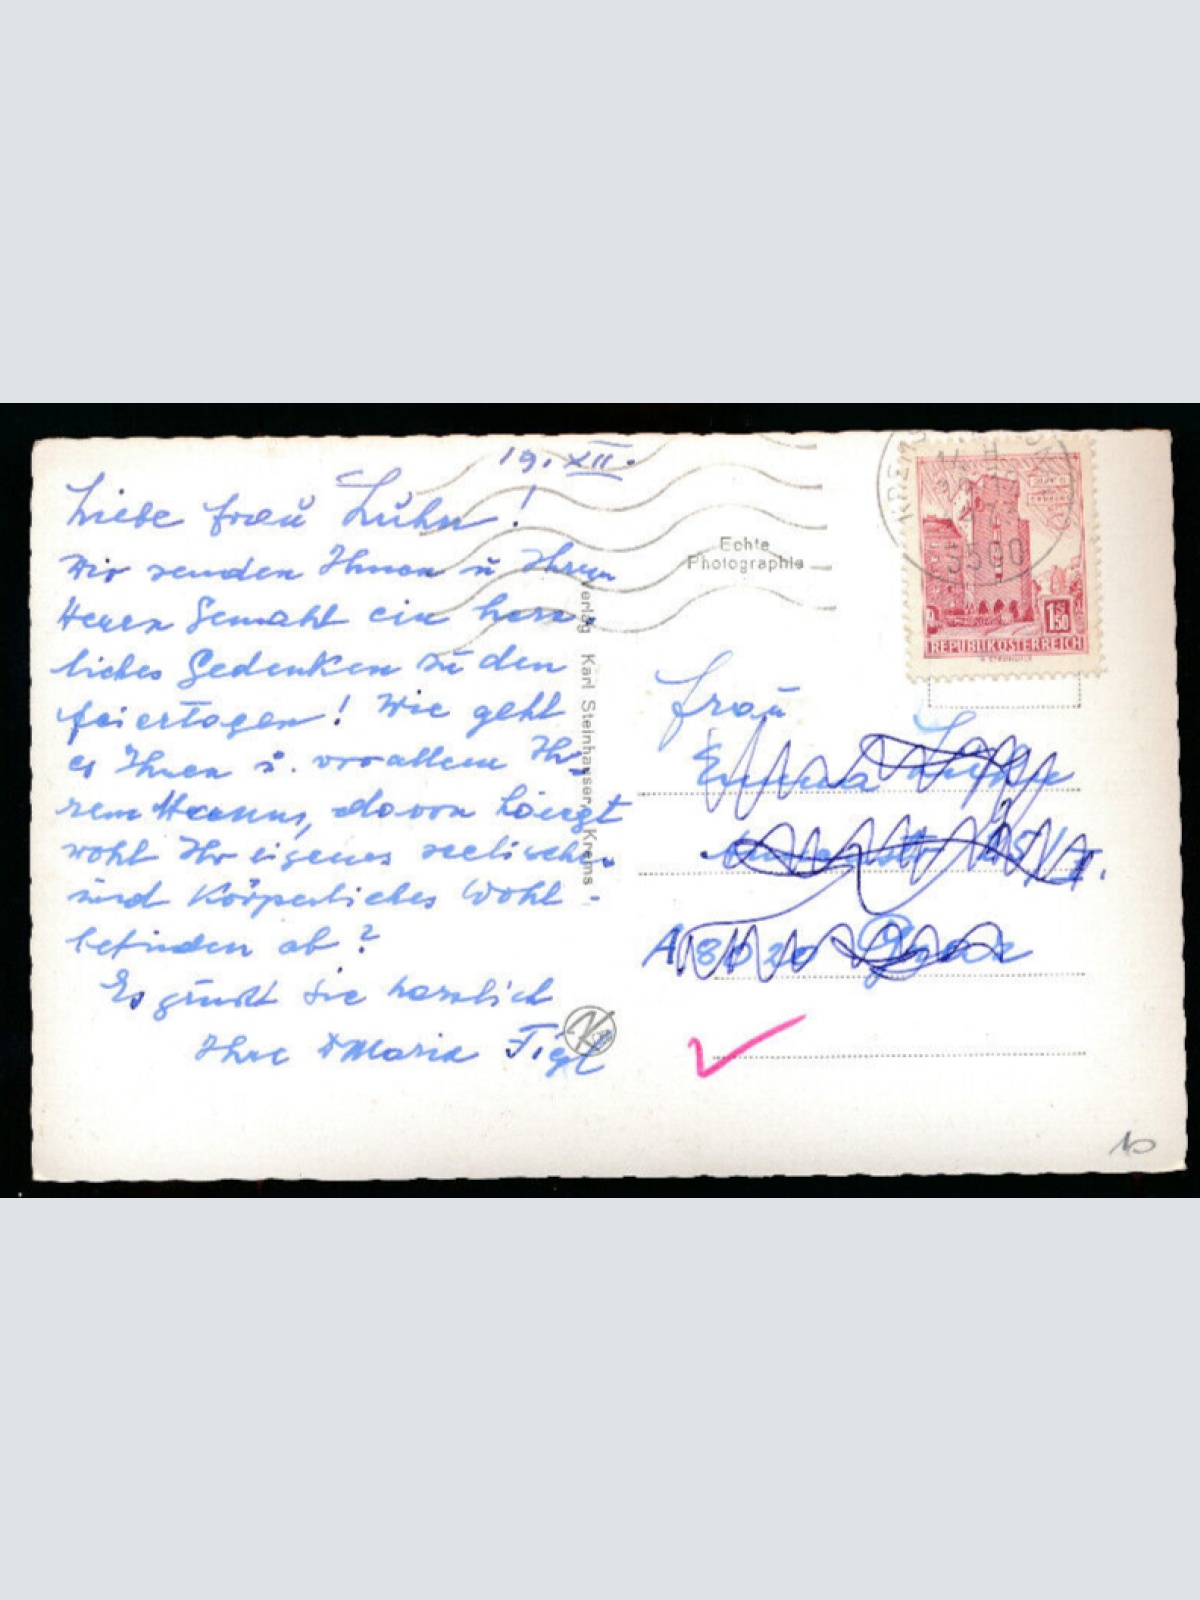 19. XII.
Liebe Frau Luhn!
Wir senden Ihnen u Ihrem
Herrn Gemahl ein herz-
liches Gedenken zu den
Feiertagen! Wie geht
es Ihnen u. vor allem Ih-
rem Mann, davon hängt
wohl Ihr eigenes seelisches
und körperliches Wohl-
befinden ab?
Es grüßt Sie herzlich
Ihre Maria Figl
Echte
Photographie
Verlag Karl Steinhauser, Krems
KREMS
3500
1.50
REPUBLIK ÖSTERREICH
Frau
Emma
A 8020 Graz
10